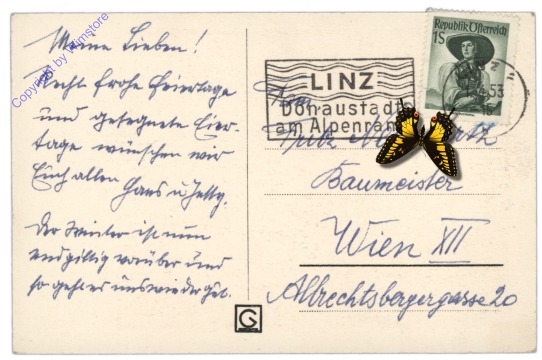 Meine Lieben!
Recht frohe Feiertage
und gesegnete Eier-
tage wünschen wir
Euch allen
Hans u
Der Winter ist nun
endgiltig vorüber und
so geht es uns wieder gut.
Republik Österreich
1S
LINZ
Donaustadt
am Alpenran
53
Baumeister
Wien XII
Albrechtsbergergasse 20
G
Copyright by Wimstore